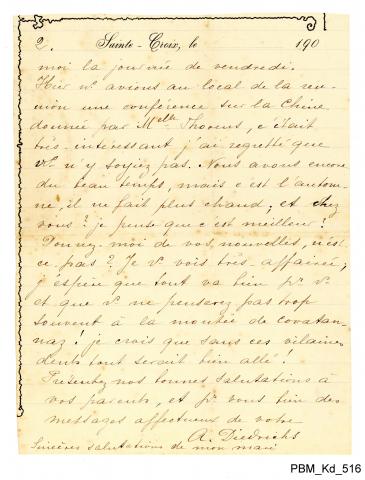 2. Sainte-Croix, le 190
moi la journée de vendredi.
Hier ns. avions au local de la reu-
nion une conférence sur la Chine
donnée par Melle Thoerens, c'était
très-intéressant j'ai regretté que
vs. n'y soyiez pas. Nous avons encore
du beau temps, mais c'est l'autom-
ne, il ne fait plus chaud; et chez
vous? je pense que c'est meilleur!
Donnez-moi de vos nouvelles, n'est
ce pas? Je vs. vois très-affairée;
j'espère que tout va bien pr. vs.
et que vs. ne penserez pas trop
souvent à la montée de Covatan-
naz! je crois que sans ces vilaines
dents tout serait bien allé!
Présentez nos bonnes salutations à
vos parents, et pr. vous bien des
messages affectueux de votre
A. Diedrichs
Sincères salutations de mon mari
PBM_Kd_516